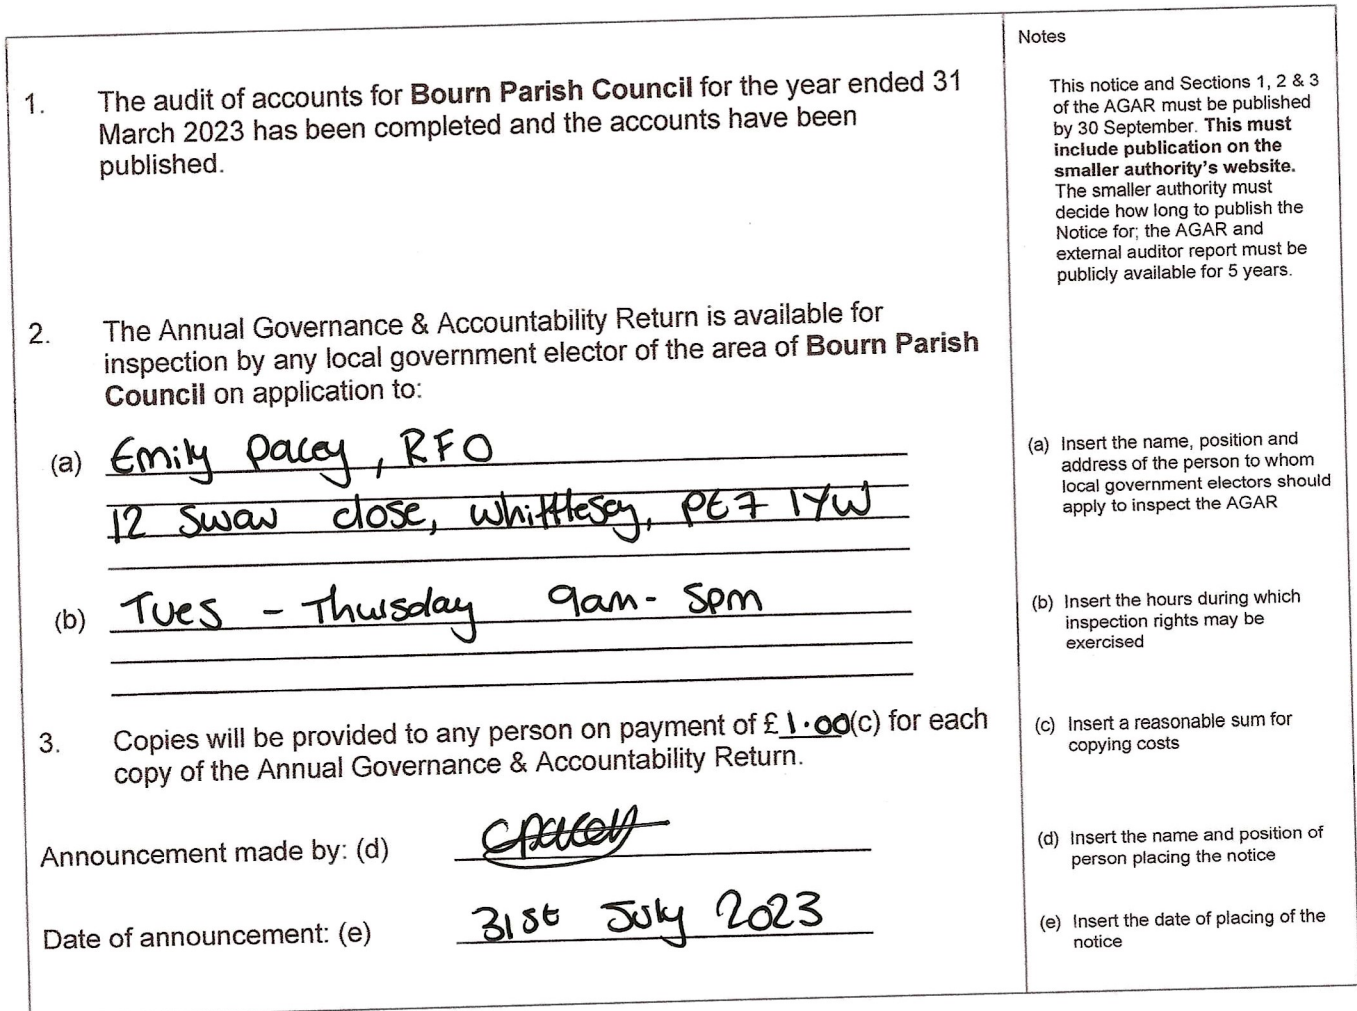 1. The audit of accounts for Bourn Parish Council for the year ended 31
March 2023 has been completed and the accounts have been
published.
2. The Annual Governance & Accountability Return is available for
inspection by any local government elector of the area of Bourn Parish
Council on application to:
(a) Emily Pacey, RFO
12 Swan close, Whittlesey, PE7 1YW
(b) Tues - Thursday 9am - 5pm
3. Copies will be provided to any person on payment of £1.00(c) for each
copy of the Annual Governance & Accountability Return.
Announcement made by: (d)
Date of announcement: (e) 31st July 2023
Notes
This notice and Sections 1, 2 & 3
of the AGAR must be published
by 30 September. This must
include publication on the
smaller authority's website.
The smaller authority must
decide how long to publish the
Notice for; the AGAR and
external auditor report must be
publicly available for 5 years.
(a) Insert the name, position and
address of the person to whom
local government electors should
apply to inspect the AGAR
(b) Insert the hours during which
inspection rights may be
exercised
(c) Insert a reasonable sum for
copying costs
(d) Insert the name and position of
person placing the notice
(e) Insert the date of placing of the
notice